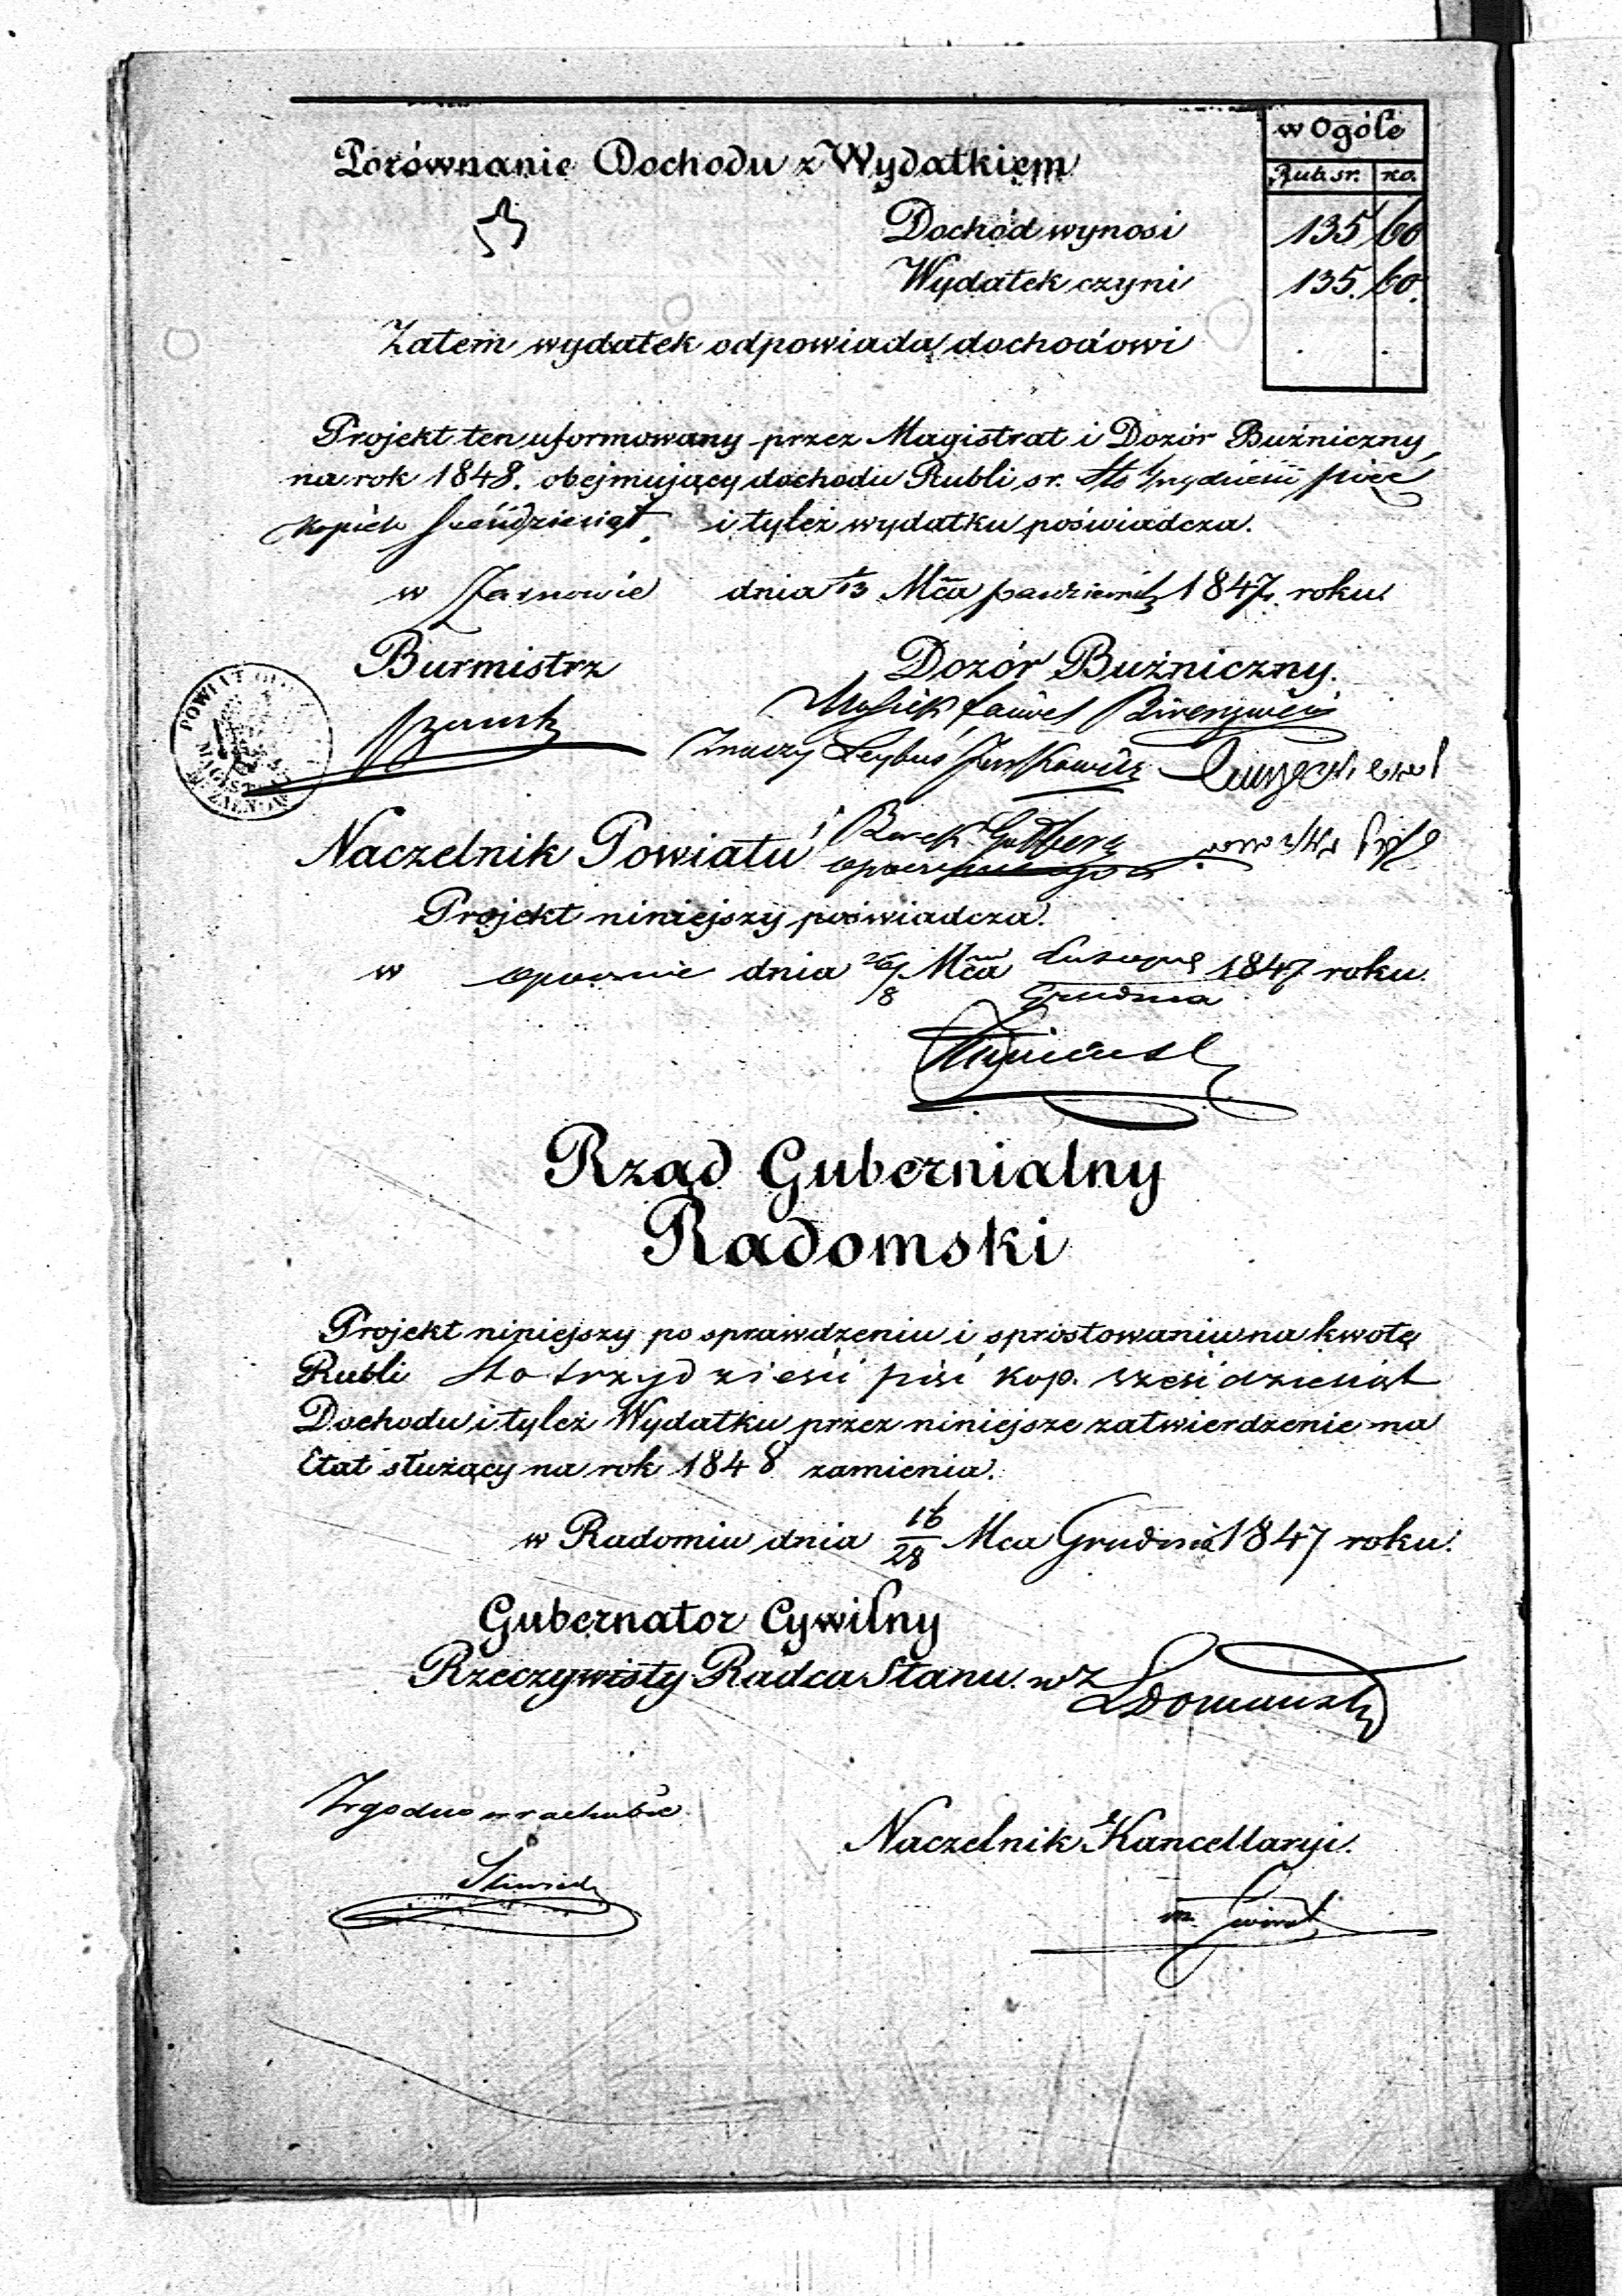 w Ogóle
Porównanie Dochodu z Wydatkiem
Rub. sr. ko.
Dochód wynosi 135 60
Wydatek czyni 135. 60.
Zatem wydatek odpowiada dochodowi . .
Projekt ten uformowany przez Magistrat i Dozór Buźniczny
na rok 1848. obejmujący dochodu Rubli sr. sto trzydzieści pięć
kopiek sześćdziesiąt, i tyleż wydatku poświadcza.
w Żarnowie dnia 1/13 Mca październ 1847. roku.
Burmistrz Dozór Buźniczny.
POWIAT
MAGISTR
Znaczy Leybuś
Berek
Naczelnik Powiatu
Projekt niniejszy poświadcza.
w Opocznie dnia 26/8 Mca Listopad/Grudnia 1847 roku.
Rząd Gubernialny
Radomski
Projekt niniejszy po sprawdzeniu i sprostowaniu na kwotę
Rubli sto trzydzieści pięć kop. sześćdziesiąt
Dochodu i tyleż Wydatku przez niniejsze zatwierdzenie na
Etat służący na rok 1848 zamienia.
w Radomiu dnia 16/28 Mca Grudnia 1847 roku.
Gubernator Cywilny
Rzeczywisty Radca Stanu. wz
Zgodno w rachubie
Naczelnik Kancellaryi.